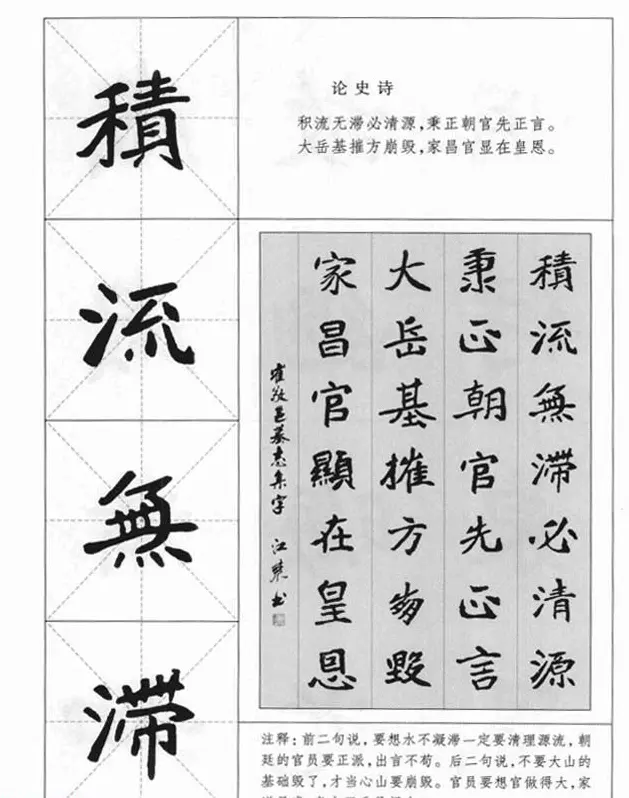 论史诗
积流无滞必清源，秉正朝官先正言。
大岳基摧方崩毁，家昌官显在皇恩。
積
流
無
滯
積流無滯必清源
秉正朝官先正言
大岳基摧方崩毀
家昌官顯在皇恩
崔敬邕墓志集字 江 书
注释：前二句说，要想水不凝滞一定要清理源流，朝
廷的官员要正派，出言不苟。后二句说，不要大山的
基础毁了，才当心山要崩毁。官员要想官做得大，家